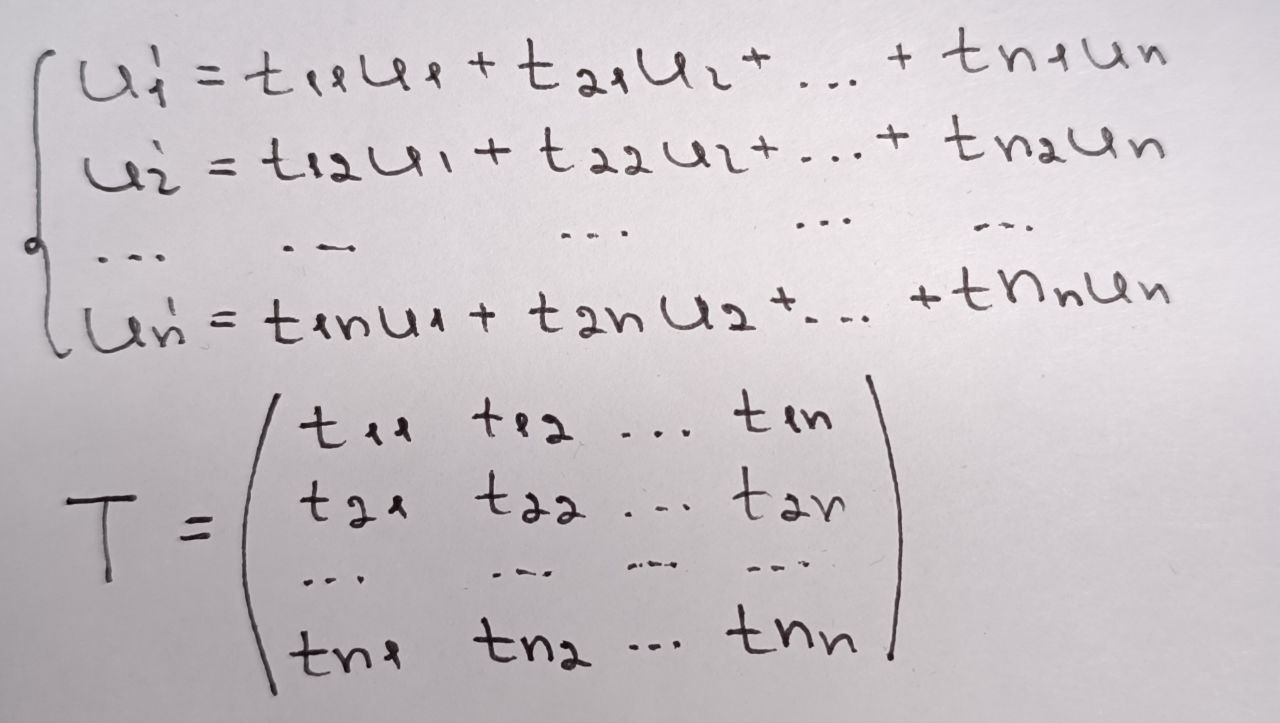 u'₁ = t₁₁u₁ + t₂₁u₂ + ... + tₙ₁uₙ
u'₂ = t₁₂u₁ + t₂₂u₂ + ... + tₙ₂uₙ
... ... ... ... ...
u'ₙ = t₁ₙu₁ + t₂ₙu₂ + ... + tₙₙuₙ
t₁₁ t₁₂ ... t₁ₙ
t₂₁ t₂₂ ... t₂ₙ
T =
... ... ... ...
tₙ₁ tₙ₂ ... tₙₙ